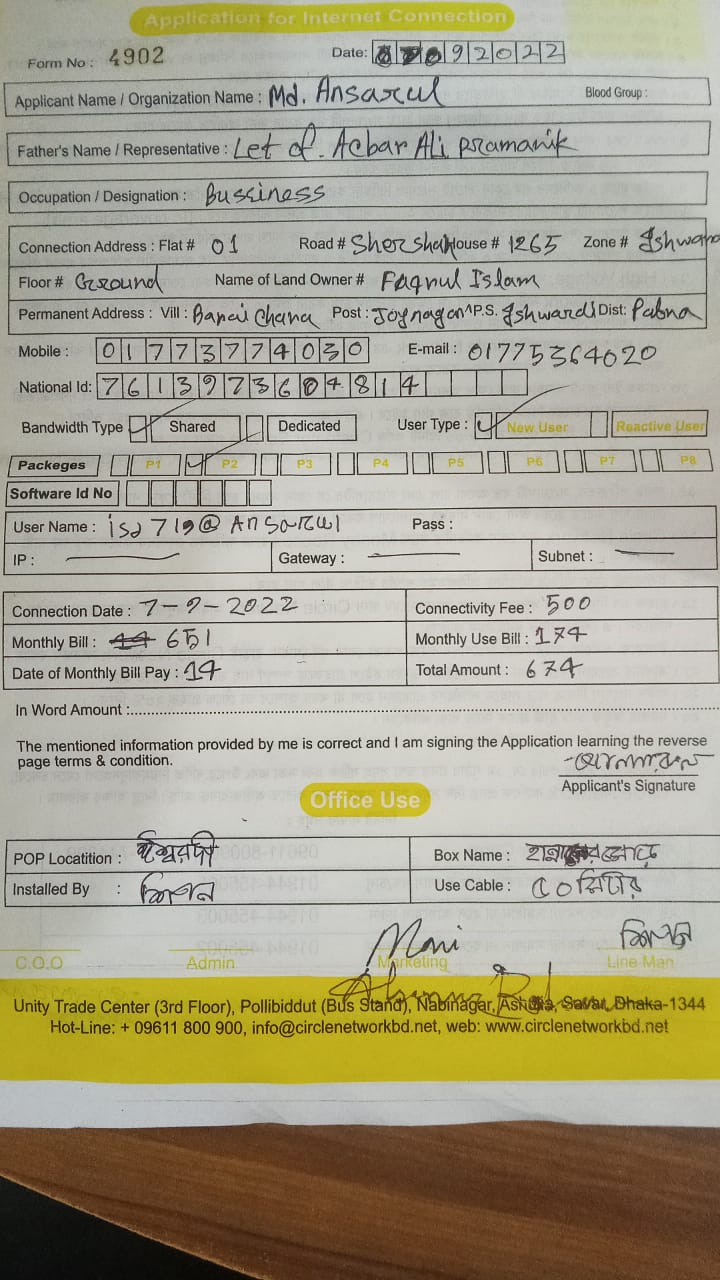 Application for Internet Connection
Form No : 4902 Date: 092022
Applicant Name / Organization Name : Md. Ansarul Blood Group :
Father's Name / Representative : Let of. Acbar Ali pramanik
Occupation / Designation : Bussiness
Connection Address : Flat # 01 Road # Shershah House # 1265 Zone # Ishward
Floor # Ground Name of Land Owner # Faqrul Islam
Permanent Address : Vill : Post : Joynagar P.S. Ishwardi Dist: Pabna
Mobile : 01773774030 E-mail : 01775364020
National Id: 7613973604814
Bandwidth Type Shared Dedicated User Type : New User Reactive User
Packeges P1 P2 P3 P4 P5 P6 P7 P8
Software Id No
User Name : @ Ansarul Pass :
IP : Gateway : Subnet :
Connection Date : 7-9-2022 Connectivity Fee : 500
Monthly Bill : 651 Monthly Use Bill : 174
Date of Monthly Bill Pay : 14 Total Amount : 674
In Word Amount :
The mentioned information provided by me is correct and I am signing the Application learning the reverse
page terms & condition.
Applicant's Signature
Office Use
POP Locatition : ঈশ্বরদী Box Name :
Installed By : লিখন Use Cable : মিটার
Moni লিখন
C.O.O Admin Marketing Line Man
Unity Trade Center (3rd Floor), Pollibiddut (Bus Stand), Nabinagar, Ashulia, Savar, Dhaka-1344
Hot-Line: + 09611 800 900, info@circlenetworkbd.net, web: www.circlenetworkbd.net